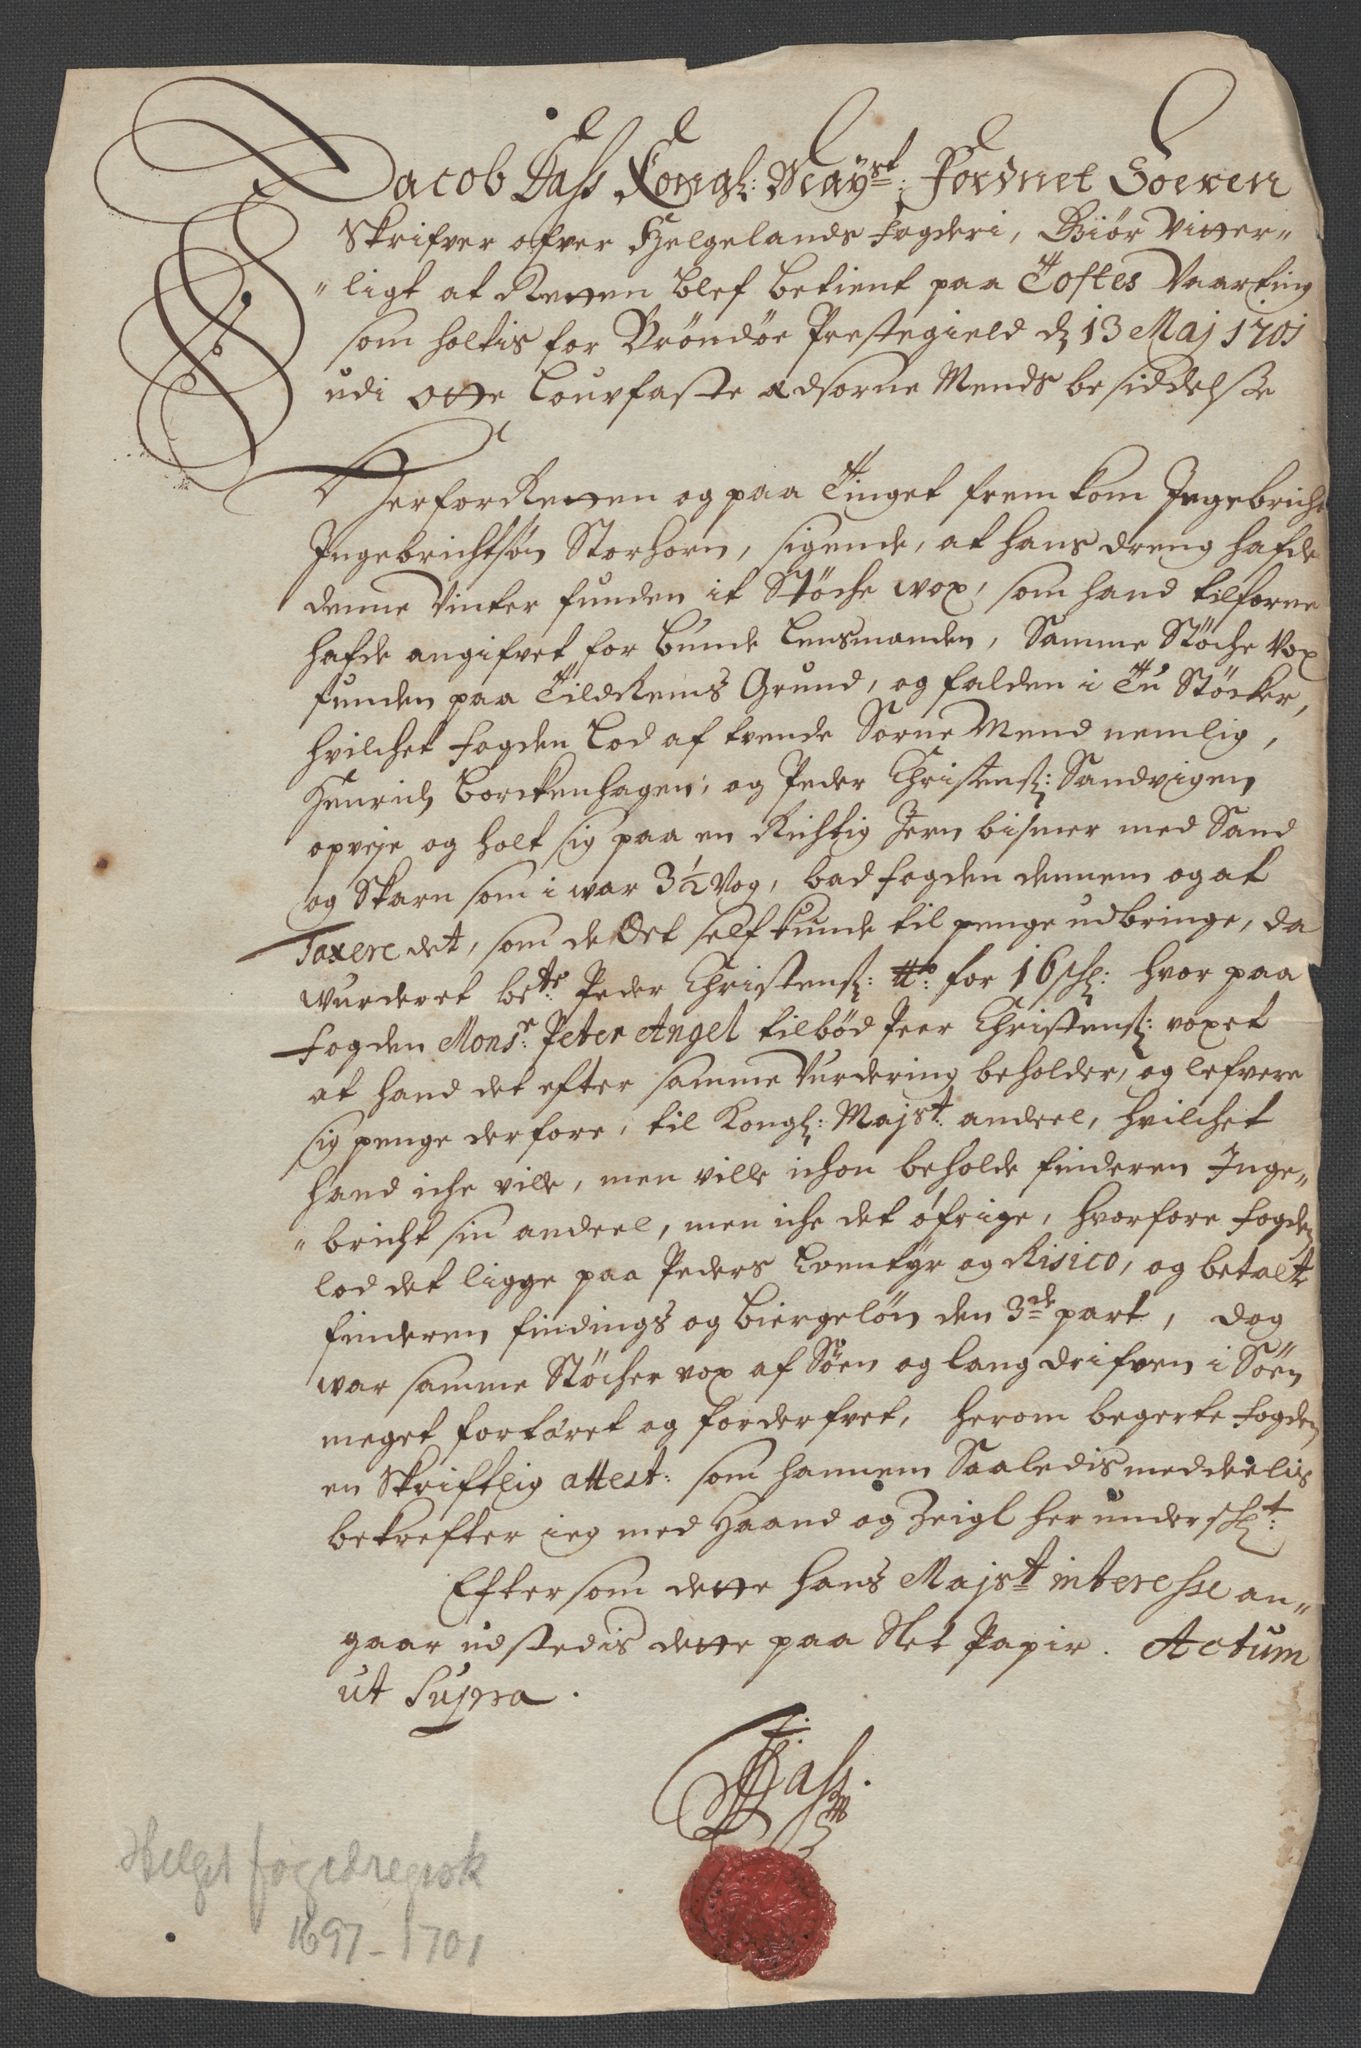 Jacob Dass Kongl: Mayst: Fordnet Soeren
Skrifver ofver Helgelands fogderi, Giör Vitter-
ligt at Retten blef betient paa Toftes Vaarting
som holtis for Brönöe Prestegield d 13 Maj 1701
udi otte Louvfaste Edsorne Mends besiddelsse
Herfor Retten og paa Tinget frem kom Ingebricht
Ingebrichtsøn Storhorn, sigende, at hans dreng hafde
denne Vinter funden it Støche vox, som hand tilforne
hafde angifvet for bunde Lensmanden, Samme Støche Vox
funden paa Tildrems Grund, og falden i Tu Støcker,
hvilchet fogden Lod af tvende Sorne Mend nemlig,
Henrich Borckenhagen, og Peder Christens: Sandvigen
opveje og holt sig paa en Richtig Jern bismer med Sand
og Skarn som i war 3½ Vog, bad fogden dennem og at
Taxere det, som de det self kunde til penge udbringe, da
wurderet bete: Peder Christens: ℔: for 16 sk: hvor paa
fogden Monsr: Peter Angel tilbød Peer Christens: voxet
at hand det efter samme Vurdering beholder, og lefvere
sig penge derfore, til Kongl: Majst: andeel, hvilchet
hand iche ville, men ville ichon beholde finderen Inge-
bricht sin andeel, men iche det öfrige, hvorfore fogden
lod det ligge paa Peders Eventyr og Risico, og betalte
finderen findings og biergeløn den 3de part, dog
war samme Støcher vox af Søen og lang drifven i Søen
meget fortæret og forderfvet, herom begerte fogden
en Skriftlig attest: som hannem Saaledis meddeelis
bekrefter ieg med Haand og Zeigl her under sht:
Eftersom dette hans Majst interesse an-
gaar udstedis dette paa Slet Papir. Actum
ut Supra.
JDass.
Helgel fogedregnsk
1697-1701